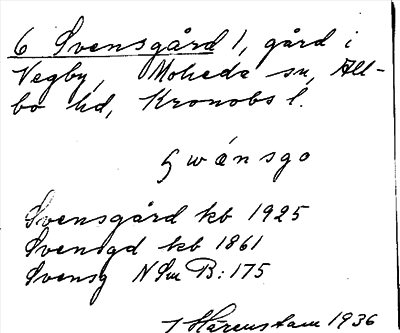 6 Svensgård 1, gård i
Vegby, Moheda sn, All-
bo hd, Kronobs l.
Svensgård kb 1925
Svensgd kb 1861
Svensg N Sm B:175
J Hårenstam 1936